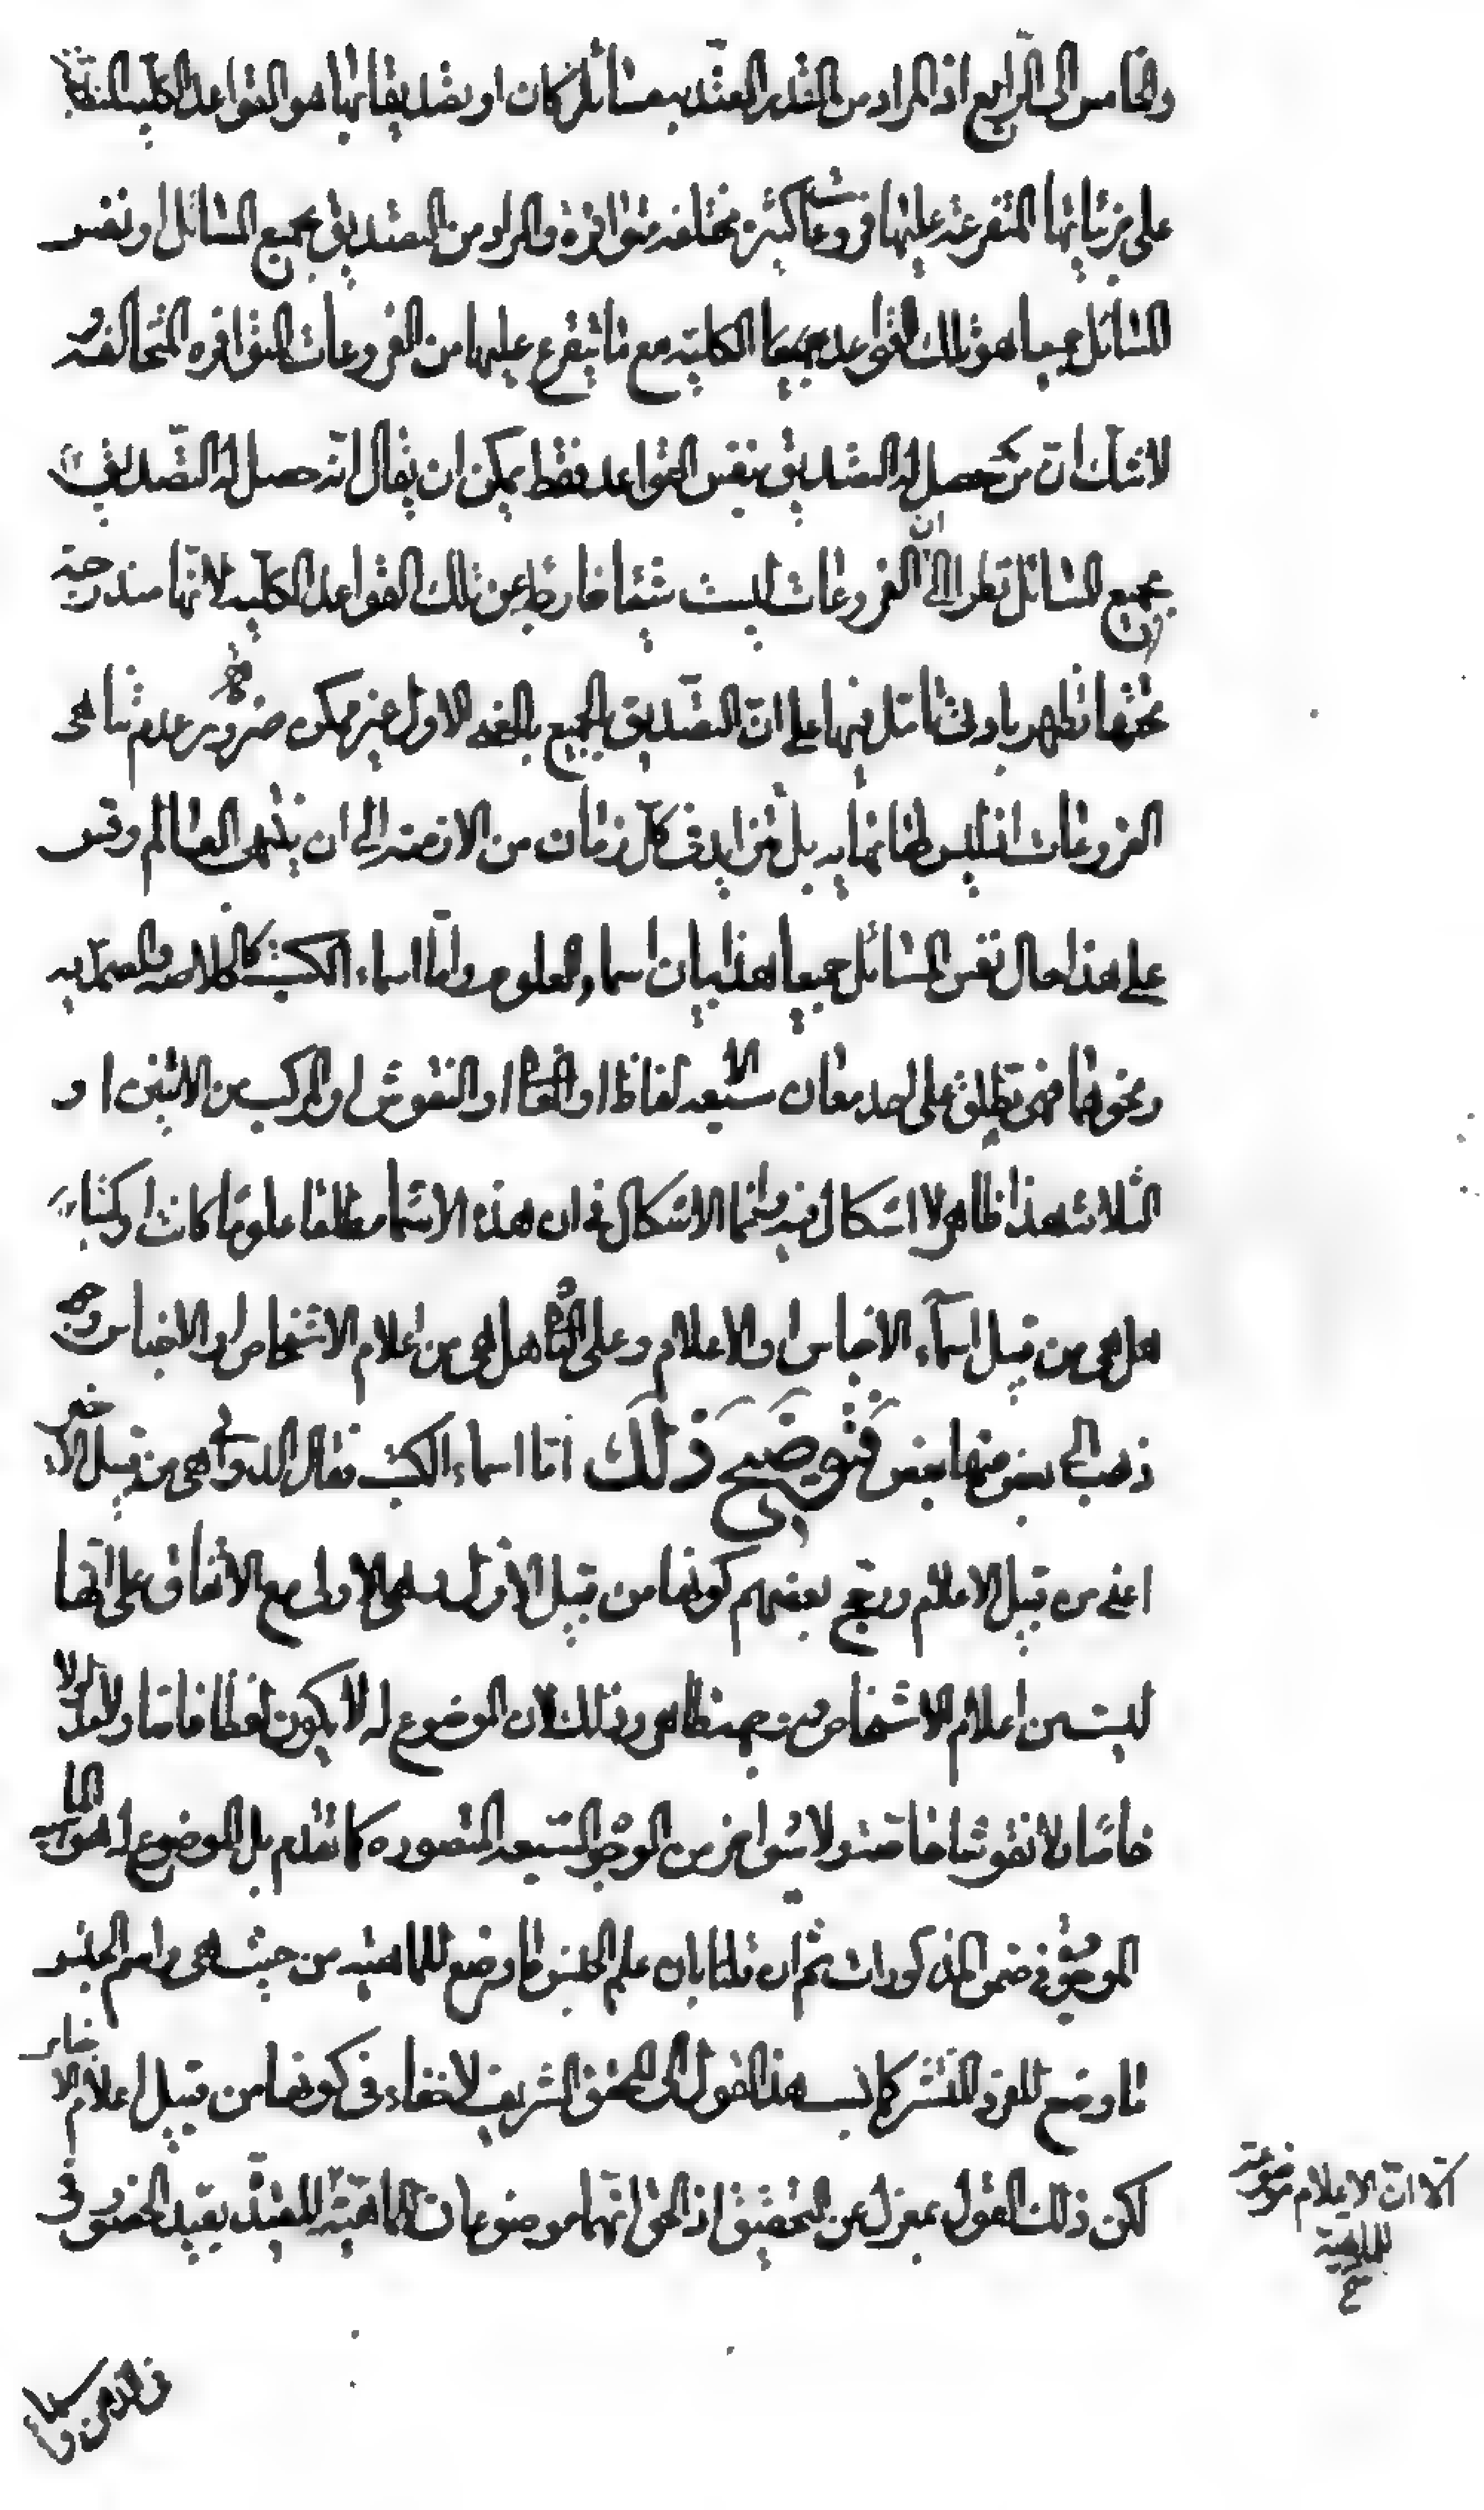 والخامس الى الرابع اذ المراد من القدر المعتد به مسائل كان او تصديقاتها هو القواعد الكلية المنطبقة
على جزئياتها المتفرعة عليها فروعا كثيرة مختلفة متوافرة والمراد من التصديق بجميع المسائل او نفس
المسائل جميعا هو تلك القواعد جميعا الكلية مع ما يتفرع عليها من الفروعات المتوافره المتخالفة و
لا شك ان من حصل له التصديق بنفس القواعد فقط يمكن ان يقال انه حصل له التصديق
بجميع المسائل نظرا الى ان الفروعات ليست شيئا خارجا عن تلك القواعد الكلية لانها مندرجة
تحتها تظهر بادنى تامل فيها على ان التصديق بالجميع بالنحو الاول غير ممكن ضرورة عدم تناهى
الفروعات اذ ليس لها نهاية بل تتزايد في كل زمان من الازمنة الى ان ينتهى العالم وقس
على هذا حال نفس المسائل جميعا هذا بيان اسماء العلوم واما اسماء الكتب كالخلاصة والصمدية
ونحوهما فهى تطلق على احد معان سبعة الالفاظ او المعانى او النقوش او المركب من الاثنين او
الثلاثة هذا ظاهر لا اشكال فيه وانما الاشكال في ان هذه الاسماء مطلقا علوما كانت او كتبا
هل هى من قبيل اسماء الاجناس او الاعلام وعلى الثانى هل هى من اعلام الاشخاص او الاجناس وجوه
ذهب الى بعض منها بعض فتوضيح ذلك اما اسماء الكتب فقال الدوانى هى من قبيل الاخير
اعنى من قبيل الاعلام ورجح بعضهم كونها من قبيل الاول وهى الاولى مع الاتفاق على انها
ليست من اعلام الاشخاص من جهة ظاهر وذلك لان الموضوع له لا يكون لفظا خاصا ولا مدلولا
خاصا ولا نقوشا خاصة ولا شئ اخر من الوجوه السبعة المتصوره كما تقدم بل الموضوع له هو الماهية
الموجودة في ضمن المذكورات ثم ان قلنا بان علم الجنس ما وضع للماهية من حيث هى واسم الجنس
ما وضع للفرد المنتشر كما نسب هذا القول الى المحقق الشريف لا خفاء في كونها من قبيل اعلام الاجناس
لكن ذلك القول بمعزل عن التحقيق اذ الحق انهما موضوعان للماهية المقيد بقيد الحضور في
الا ان الاعلام موضوعة
للماهية
صح